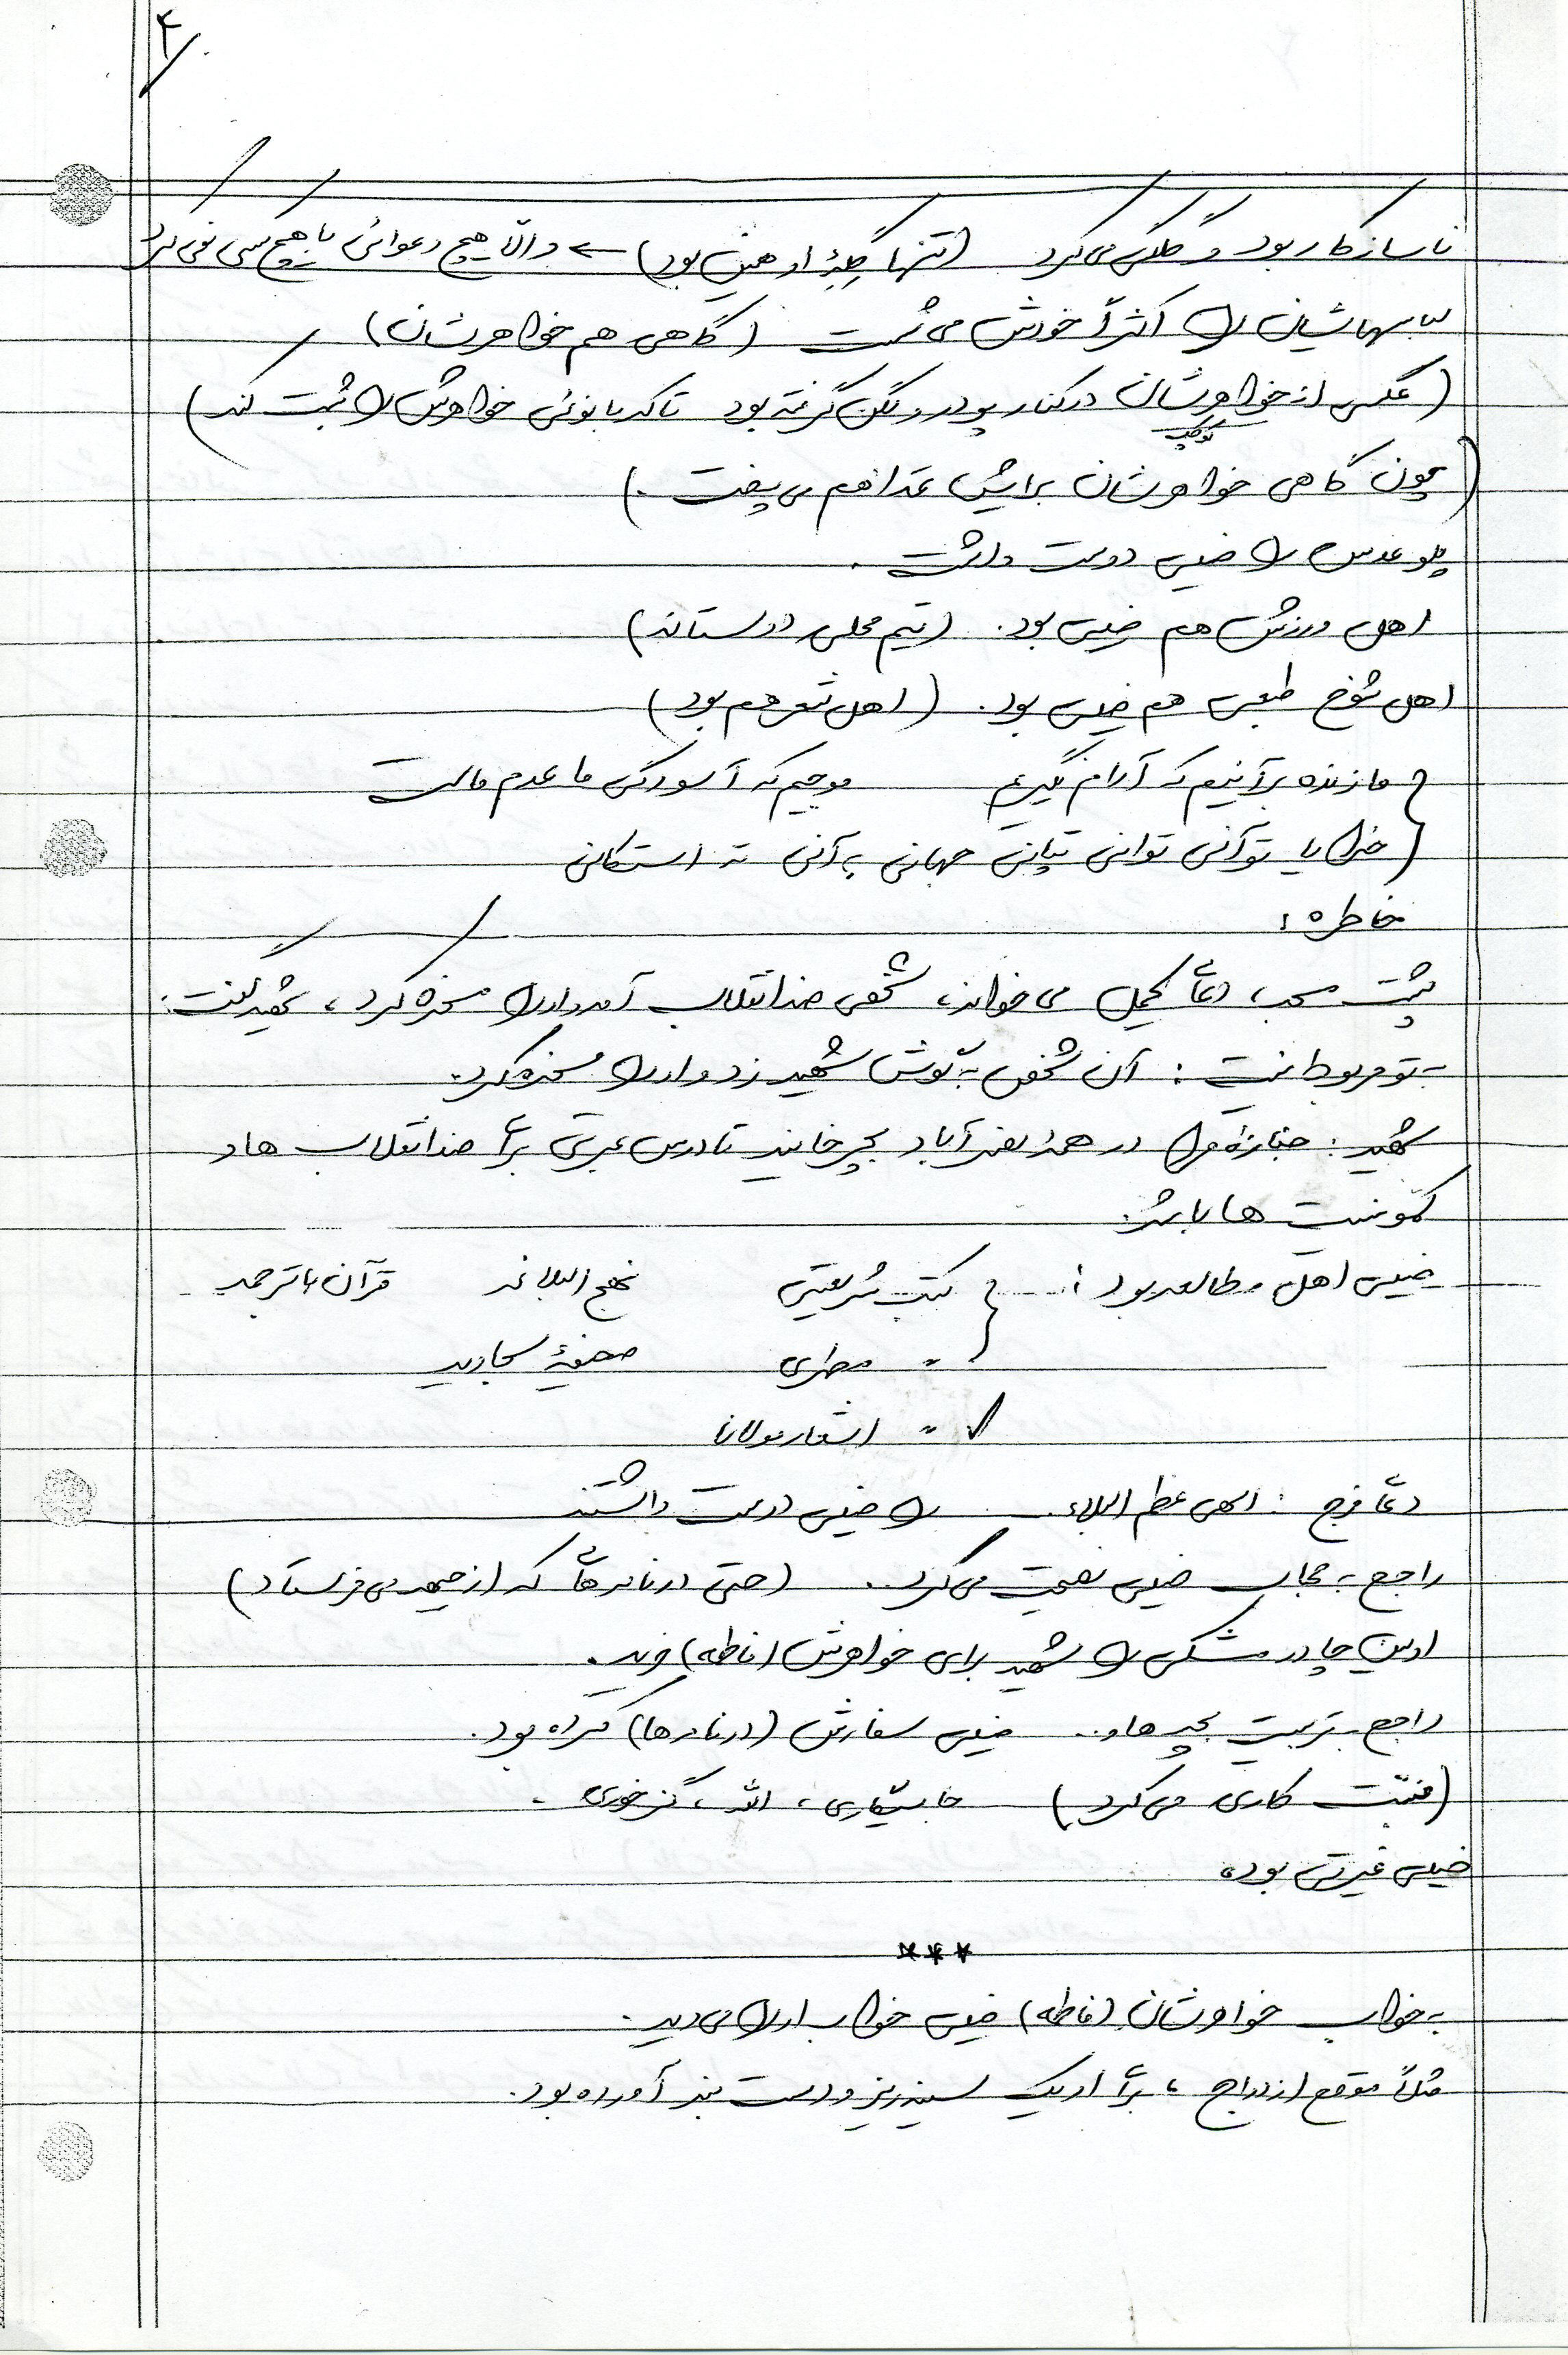 ۴
ناسازگار بود و گلگی می‌کرد (تنها گلهٔ او همین بود) ← والّا هیچ دعوائی با هیچ کسی نمی‌کرد
لباسهاشان را اکثراً خودش می شست (گاهی هم خواهرشان)
(عکسی از خواهرشان در کنار پودر و لگن گرفته بود تا کدبانوئی خواهرش را ثبت کند)
کوچک
(چون گاهی خواهرشان برایش غذا هم می پخت.)
پلو عدس را خیلی دوست داشت.
اهل ورزش هم خیلی بود. (تیم محلی دوستانه)
اهل شوخ طبعی هم خیلی بود. (اهل شعر هم بود)
ما زنده برآنیم که آرام نگیریم موجیم که آسودگی ما عدم ماست
خدایا تو آنی توانی تپانی جهانی به آنی ته استکانی
خاطره:
پشت مسجد دعای کمیل می خواند، شخصی ضد انقلاب آمد و او را مسخره کرد، شهید گفت:
به تو مربوط نیست: آن شخص به گوش شهید زد و او را مسخره کرد.
شهید: جنازهٔ مرا در همهٔ آباد بچرخانید تا درس عبرتی برای ضد انقلاب ها و
کمونیست ها باشد.
خیلی اهل مطالعه بود: کتب شریعتی نهج البلاغه قرآن با ترجمه
" مطهری صحیفهٔ سجادیه
" اشعار مولانا
دعای فرج: الهی عظم البلاء.. را خیلی دوست داشتند
راجع به حجاب خیلی نصیحت می‌کرد. (حتی در نامه‌های که از جبهه می فرستاد)
اولین چادر مشکی را شهید برای خواهرش (فاطمه) خرید.
راجع به تربیت بچه ها و.. خیلی سفارش (در نامه‌ها) کرده بود.
(منبّت کاری می‌کرد) خاتم‌کاری، الله، گز خوری.
خیلی غیرتی بود.
***
به خواب خواهرشان (فاطمه) خیلی خواب او را می دید.
مثلاً موقع ازدواج، برای او یک سینه ریز و دست بند آورده بود.